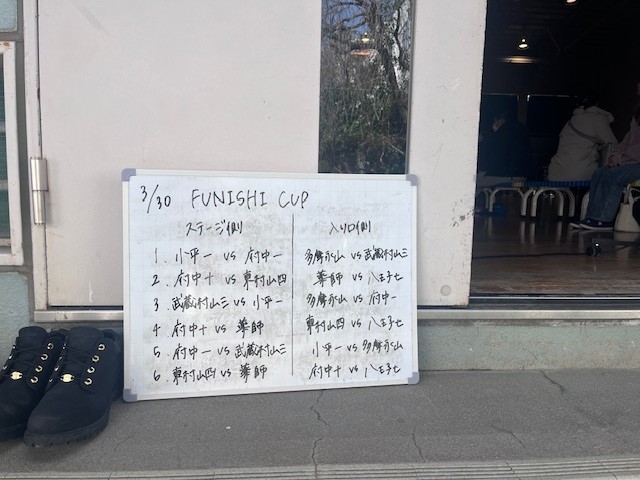 3/30 FUNISHI CUP
ステージ側 入り口側
1. 小平一 vs 府中一 多摩永山 vs 武蔵村山三
2. 府中十 vs 東村山四 薬師 vs 八王子七
3. 武蔵村山三 vs 小平一 多摩永山 vs 府中一
4. 府中十 vs 薬師 東村山四 vs 八王子七
5. 府中一 vs 武蔵村山三 小平一 vs 多摩永山
6. 東村山四 vs 薬師 府中十 vs 八王子七